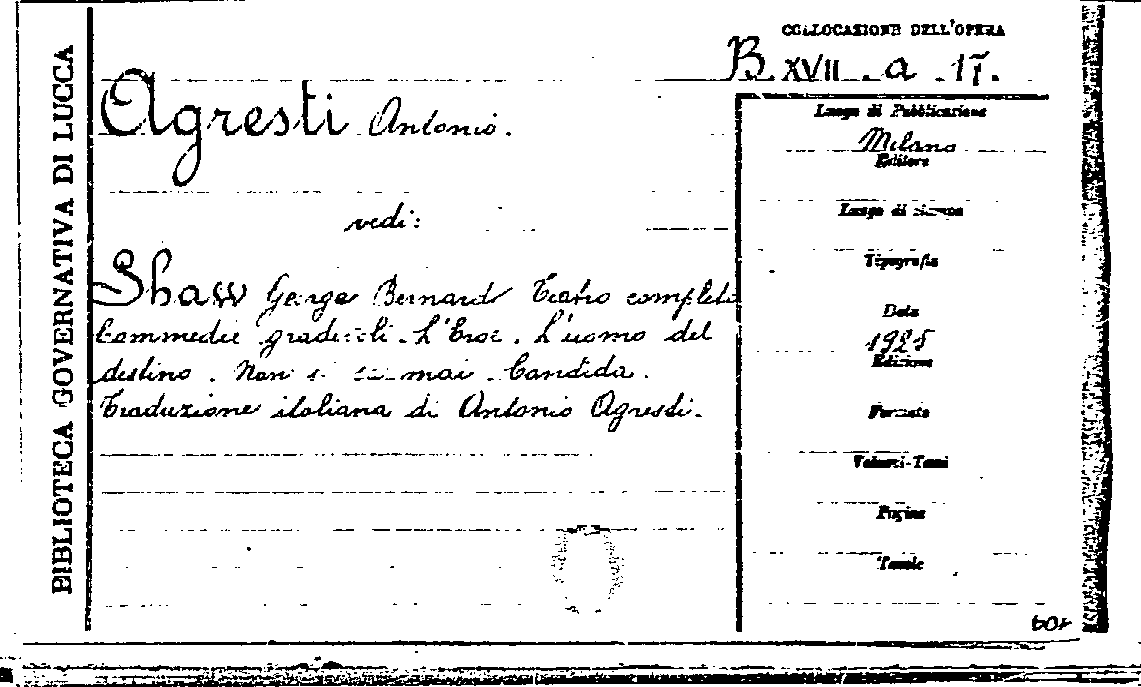 BIBLIOTECA GOVERNATIVA DI LUCCA
COLLOCAZIONE DELL'OPERA
B. XVII . a . 17.
Agresti Antonio.
vedi:
Shaw George Bernard Teatro completo
Commedie gradevoli. L'Eroe. L'uomo del
destino. Non si mai. Candida.
Traduzione italiana di Antonio Agresti.
Luogo di Pubblicazione
Milano
Editore
Luogo di stampa
Tipografia
Data
1925
Edizione
Formato
Volumi-Tomi
Pagine
Tavole